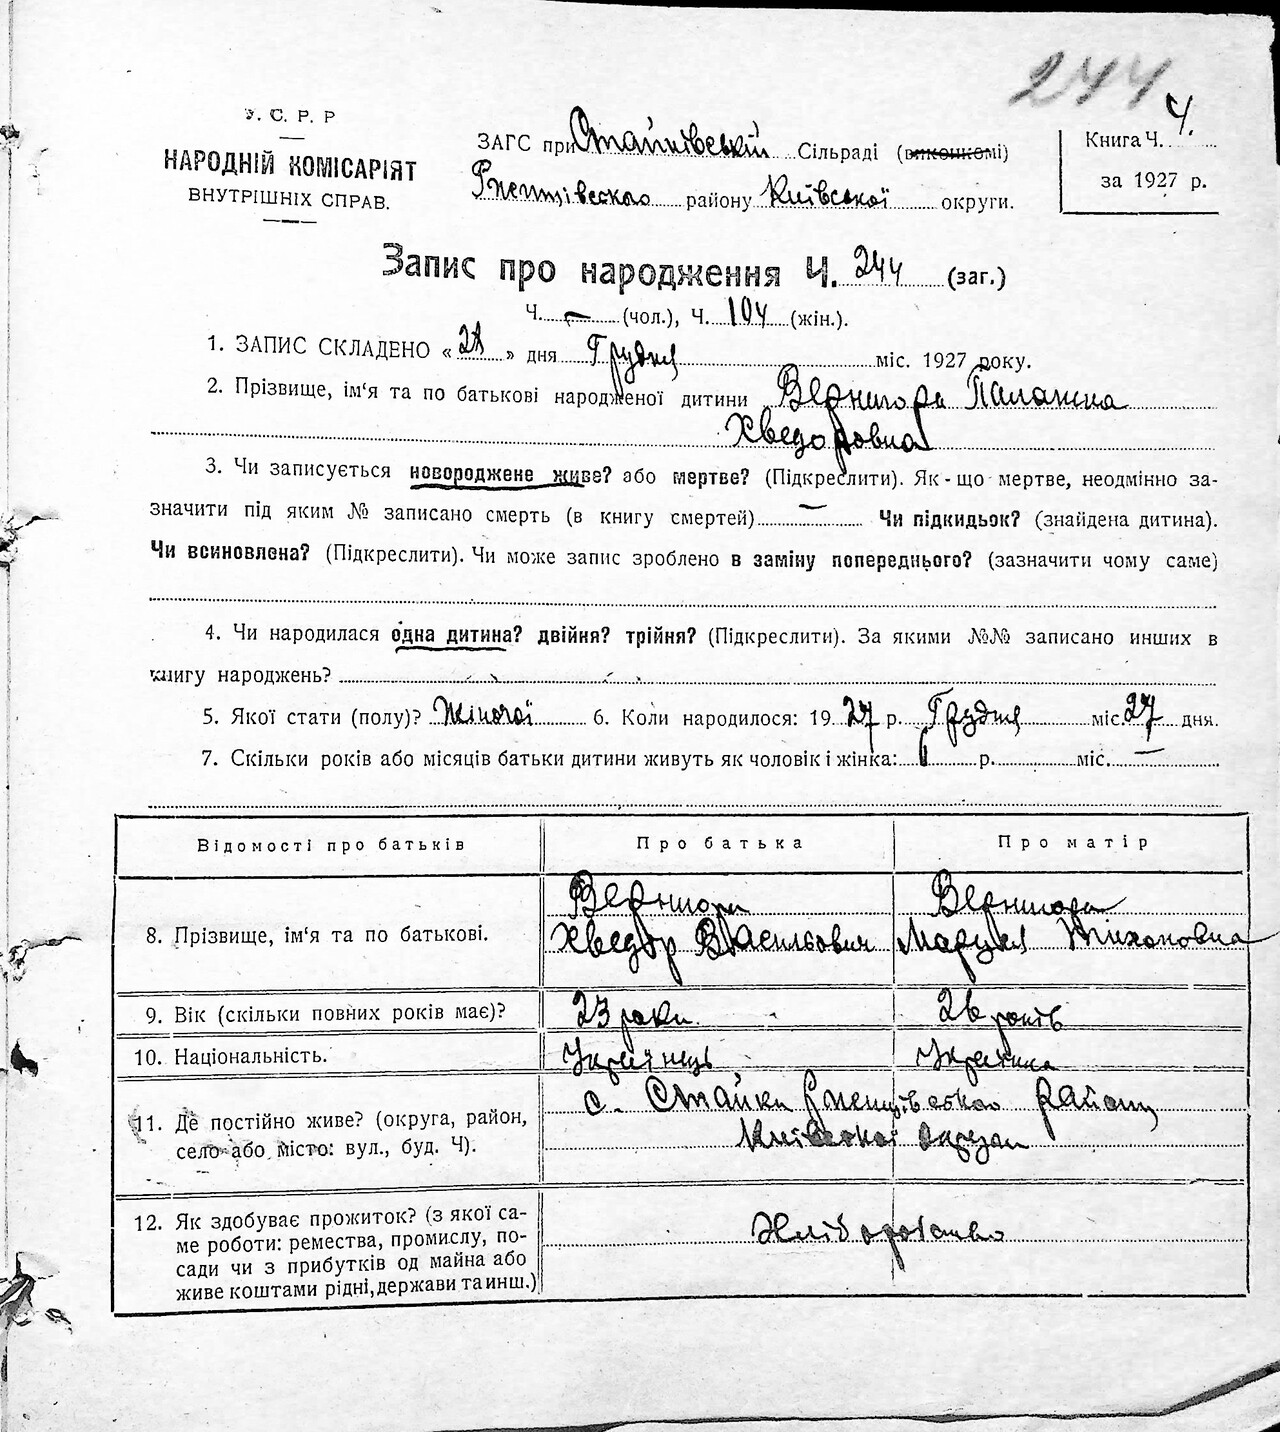 244
У. С. Р. Р
НАРОДНІЙ КОМІСАРІЯТ
ВНУТРІШНІХ СПРАВ.
ЗАГС при Стайківській Сільраді (виконкомі)
Ржищівського району Київської округи.
Книга Ч. 4.
за 1927 р.
Запис про народження Ч. 244 (заг.)
Ч. — (чол.), Ч. 104 (жін.).
1. ЗАПИС СКЛАДЕНО « » дня Грудня міс. 1927 року.
2. Прізвище, ім'я та по батькові народженої дитини Вернигора Палажка
Хведоровна
3. Чи записується новороджене живе? або мертве? (Підкреслити). Як-що мертве, неодмінно за-
значити під яким № записано смерть (в книгу смертей) — Чи підкидьок? (знайдена дитина).
Чи всиновлена? (Підкреслити). Чи може запис зроблено в заміну попереднього? (зазначити чому саме)
4. Чи народилася одна дитина? двійня? трійня? (Підкреслити). За якими №№ записано инших в
книгу народжень?
5. Якої статі (полу)? Жіночої 6. Коли народилося: 1927 р. Грудня міс. 27 дня.
7. Скільки років або місяців батьки дитини живуть як чоловік і жінка: 6 р. міс. —
Відомості про батьків Про батька Про матір
8. Прізвище, ім'я та по батькові.
Вернигора Вернигора
Хведор Васильович Марція Тихоновна
9. Вік (скільки повних років має)? 23 роки 26 років
10. Національність. Українець Українка
11. Де постійно живе? (округа, район,
село або місто: вул., буд. Ч).
с. Стайки Ржищівського району
Київської округи
12. Як здобуває прожиток? (з якої са-
ме роботи: ремества, промислу, по-
сади чи з прибутків од майна або
живе коштами рідні, держави та инш.)
Хліборобство